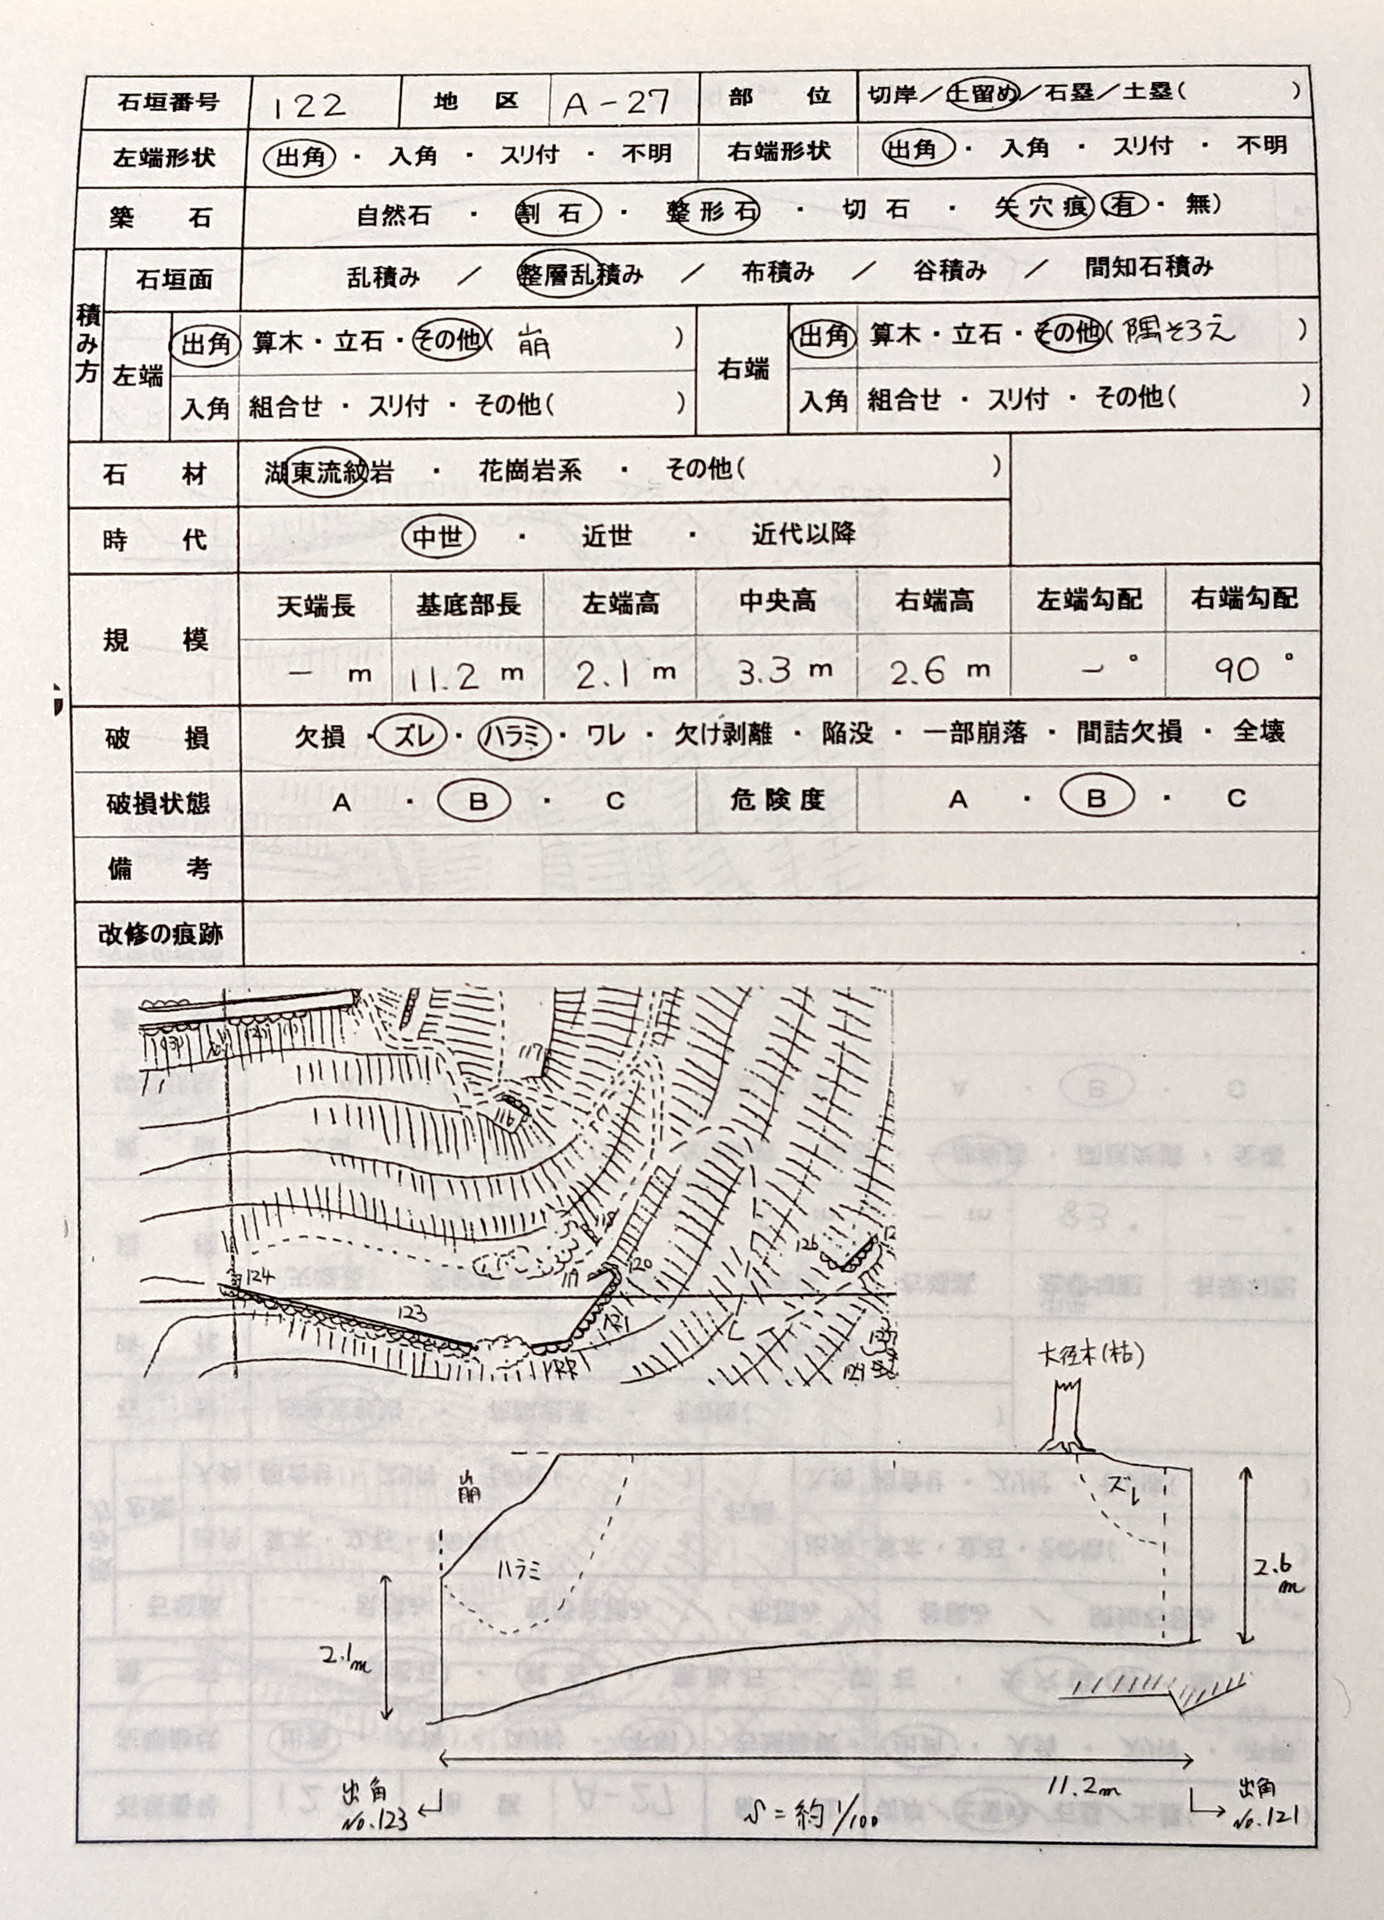 石垣番号 122 地区 A-27 部位 切岸／土留め／石塁／土塁( )
左端形状 出角 ・ 入角 ・ スリ付 ・ 不明 右端形状 出角 ・ 入角 ・ スリ付 ・ 不明
築石 自然石 ・ 割石 ・ 整形石 ・ 切石 ・ 矢穴痕(有・無)
積み方 石垣面 乱積み ／ 整層乱積み ／ 布積み ／ 谷積み ／ 間知石積み
左端 出角 算木・立石・その他( 崩 ) 右端 出角 算木・立石・その他( 隅そろえ )
入角 組合せ ・ スリ付 ・ その他( ) 入角 組合せ ・ スリ付 ・ その他( )
石材 湖東流紋岩 ・ 花崗岩系 ・ その他( )
時代 中世 ・ 近世 ・ 近代以降
規模 天端長 基底部長 左端高 中央高 右端高 左端勾配 右端勾配
－ m 11.2 m 2.1 m 3.3 m 2.6 m －° 90°
破損 欠損・ズレ・ハラミ・ワレ・欠け剥離・陥没・一部崩落・間詰欠損・全壊
破損状態 A ・ B ・ C 危険度 A ・ B ・ C
備考
改修の痕跡
117
124
119
120
126
123
121
122
129
大径木(枯)
崩
ズレ
ハラミ
2.6m
2.1m
11.2m
出角
No.123
S=約1/100
出角
No.121